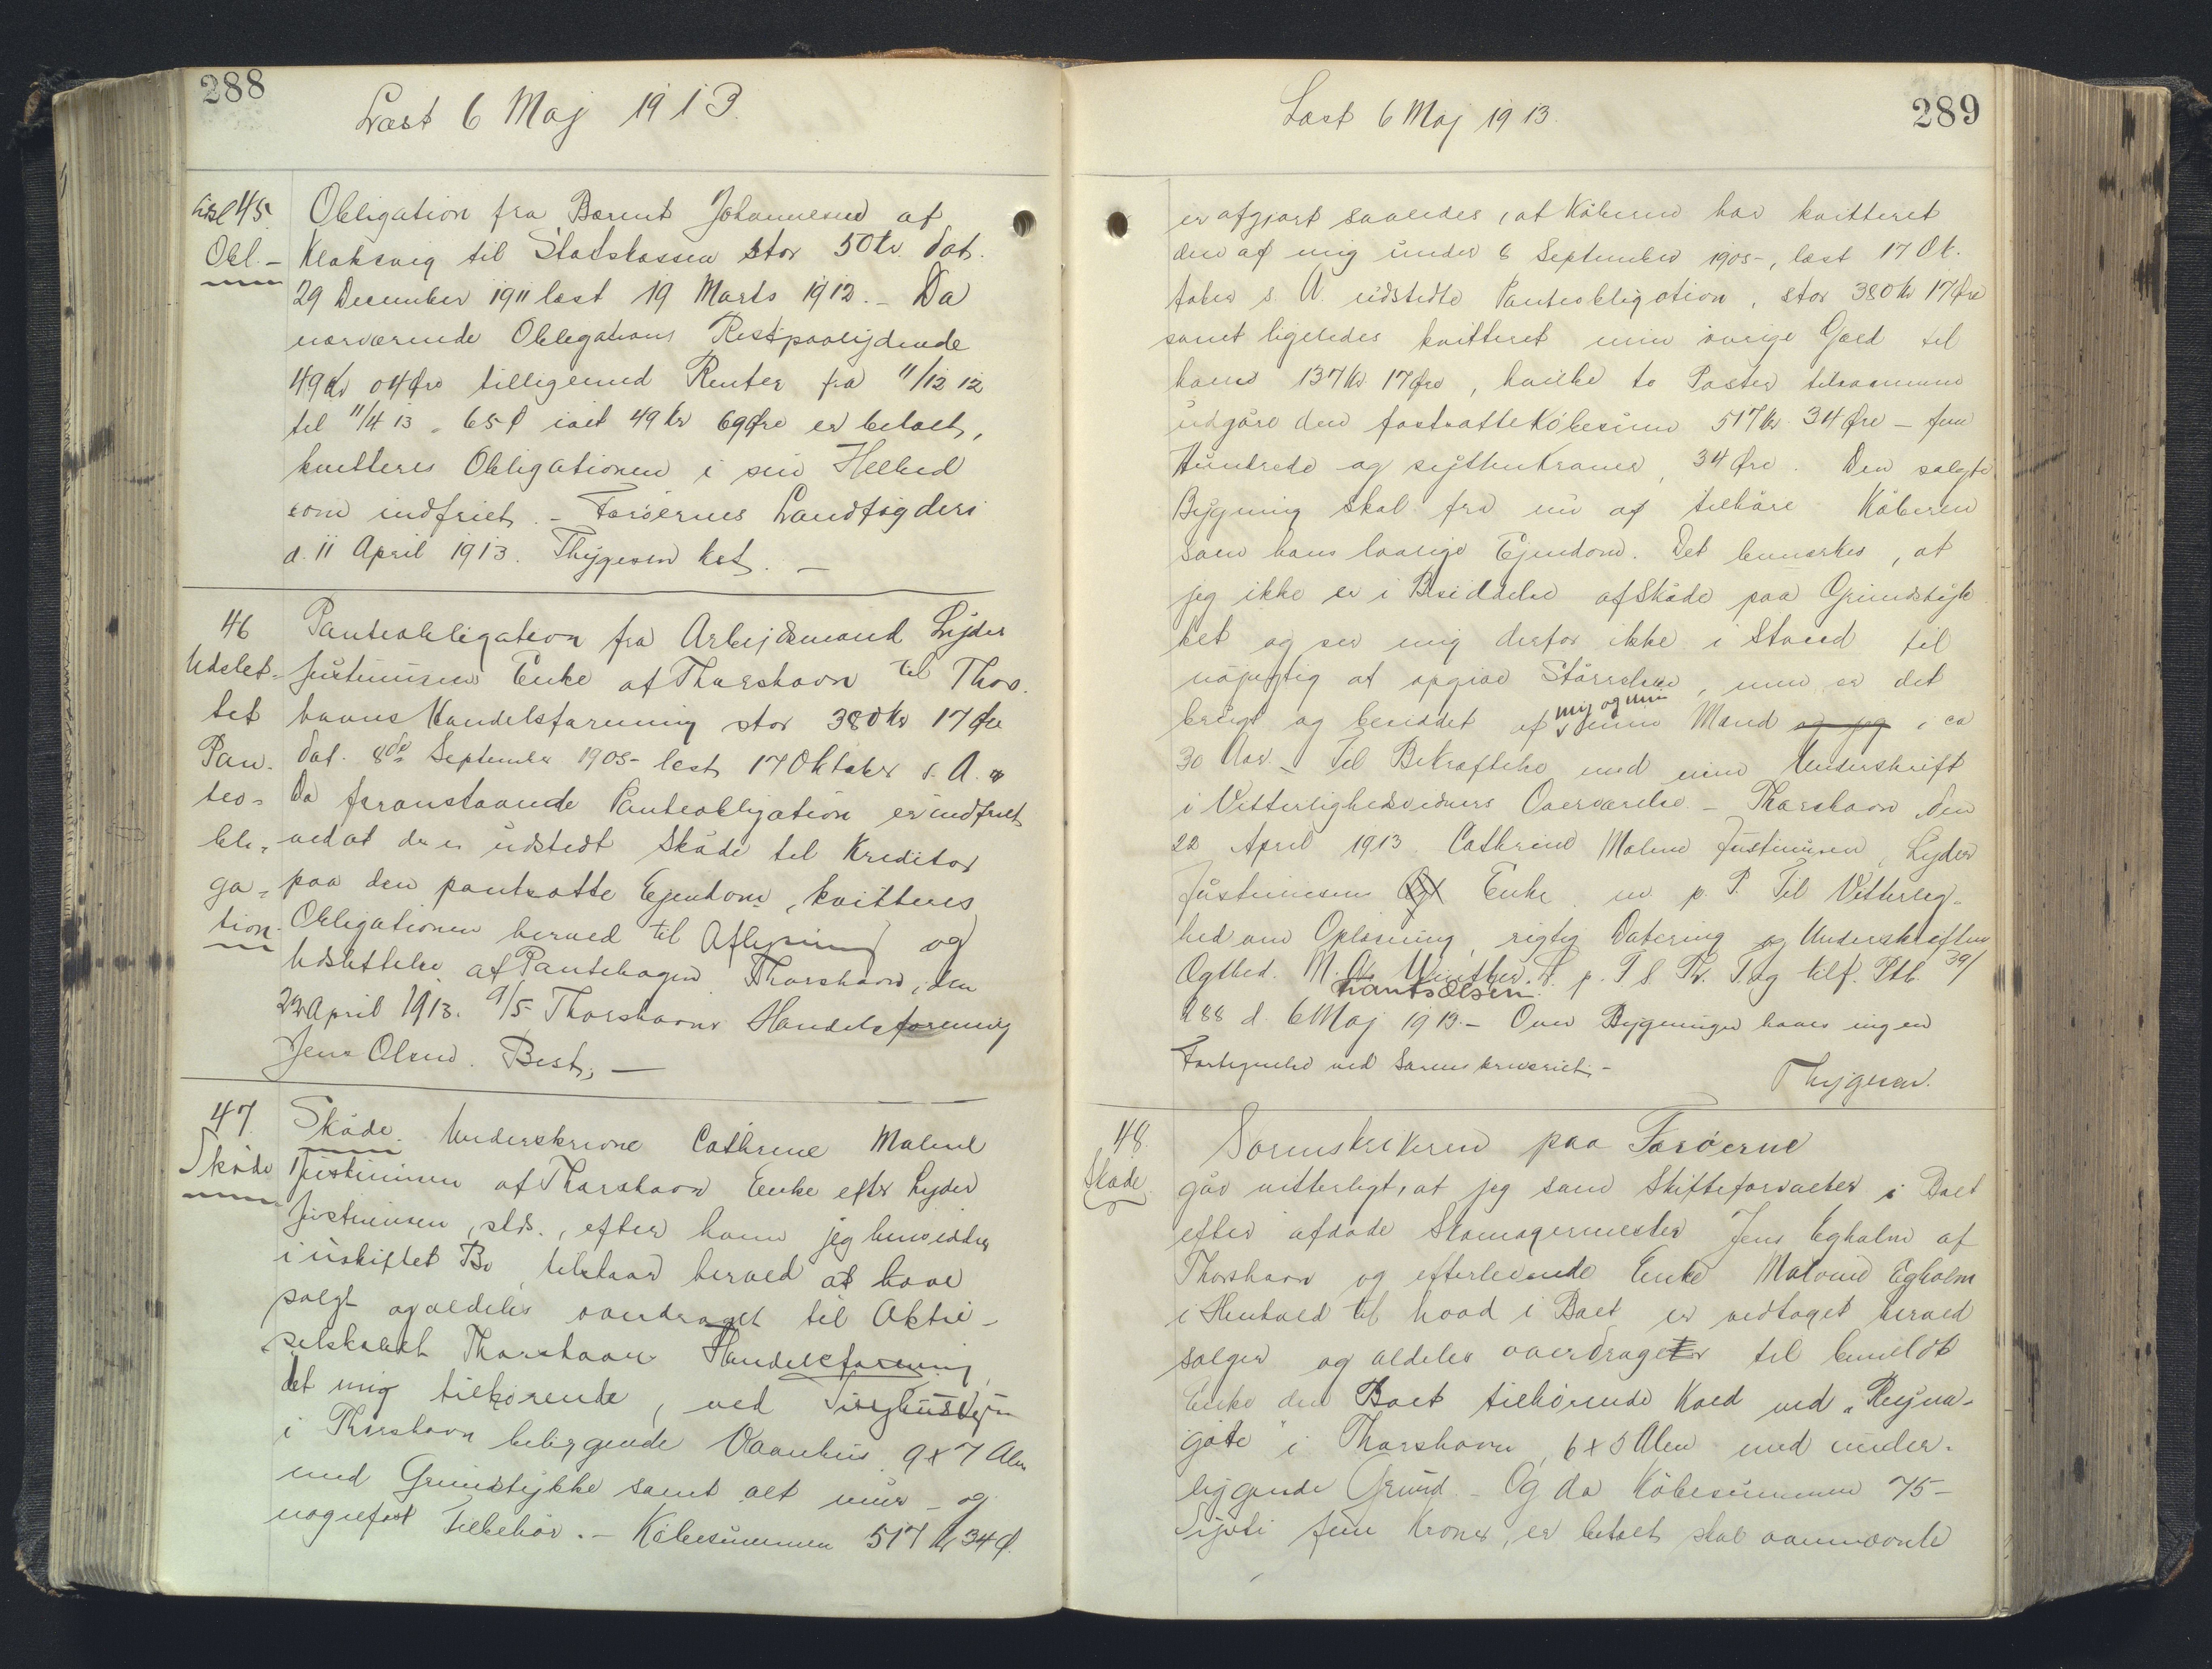 288
Læst 6 Maj 1913.
45.
Obl.
Obligation fra Berint Johannesen af
Klaksvig til Statskassen stor 50 Kr. dat.
29 December 1911 læst 19 Marts 1912. - Da
nærværende Obligations Restpaalydende
49 Kr 04 Øre tilligemed Renter fra 11/12 12
til 11/4 13 - 65 Ø ialt 49 Kr 69 Øre er betalt,
kvitteres Obligationen i sin Helhed
som indfriet. - Færøernes Landfogderi
d. 11 April 1913. Thygesen kst. -
46
Udslet-
tet
Pan-
teo-
bli-
ga-
tion.
Panteobligation fra Arbejdsmand Lyder
Justinusens Enke af Thorshavn til Thors.
havns Handelsforening stor 380 Kr 17 Øre
dat. 8de September 1905 - læst 17 Oktober s. A.
Da foranstaaende Panteobligation er indfriet
ved at der er udstedt Skøde til Kreditor
paa den pantsatte Ejendom, kvitteres
Obligationen herved til Aflysning og
Udslettelse af Pantebogen. Thorshavn, den
22 April 1913. A/S Thorshavns Handelsforening
Jens Olsen. Best. -
47.
Skøde
Skøde. Underskrevne Cathrine Malene
Justinusen af Thorshavn Enke efter Lyder
Justinusen, slds., efter hvem jeg hensidder
i uskiftet Bo, tilstaar herved at have
solgt og aldeles overdraget til Aktie-
selskabet Thorshavns Handelsforening,
det mig tilhørende, ved
i Thorshavn beliggende Vaanhus 9 x 7 Alen
med Grundstykke samt alt mur- og
nagelfast Tilbehør. - Købesummen 517 Kr 34 Ø.
Læst 6 Maj 1913.
289
er afgjort saaledes, at Køberen har kvitteret
den af mig under 8 September 1905 -, læst 17 Ok.
tober s. A. udstedte Panteobligation, stor 380 Kr 17 Øre
samt ligeledes kvitteret min øvrige Gæld til
ham 137 Kr 17 Øre, hvilke to Poster tilsammen
udgøre den fastsatte Købesum 517 Kr 34 Øre - fem
Hundrede og sytten Kroner, 34 Øre. Den solgte
Bygning skal fra nu af tilhøre Køberen
som hans lovlige Ejendom. Det bemærkes, at
jeg ikke er i Besiddelse af Skøde paa Grundstyk
ket og ser mig derfor ikke i Stand til
nøjagtig at opgive Størrelsen, men er det
brugt og besiddet af mig og min Mand og jeg i ca
30 Aar. - Til Bekræftelse med min Underskrift
i Vitterlighedsvidners Overværelse. - Thorshavn den
22 April 1913. Cathrine Malene Justinusen, Lyder
Justinusens Enke m. p. P. Til Vitterlig-
hed om Oplæsning, rigtig Datering og Underskriften
Ogsted. M. A. Winther.
Hans Olsen.
288 d. 6 Maj 1913. - Over Bygningen haves ingen
Fortegnelse ved Sorenskriveriet. -
Thygesen.
48.
Skøde
Sorenskriveren paa Færøerne
gør vitterligt, at jeg som Skifteforvalter i Boet
efter afdøde Skomagermester Jens Egholm af
Thorshavn og efterlevende Enke Malvine Egholm
i Henhold til hvad i Boet er vedtaget herved
sælger og aldeles overdrager til bemeldt
Enke den Boet tilhørende Kold ved "Reyna-
gøte" i Thorshavn, 6 x 5 Alen med under-
liggende Grund. - Og da Købesummen 75 -
Syvti fem Kroner, er betalt skal ovennævnte